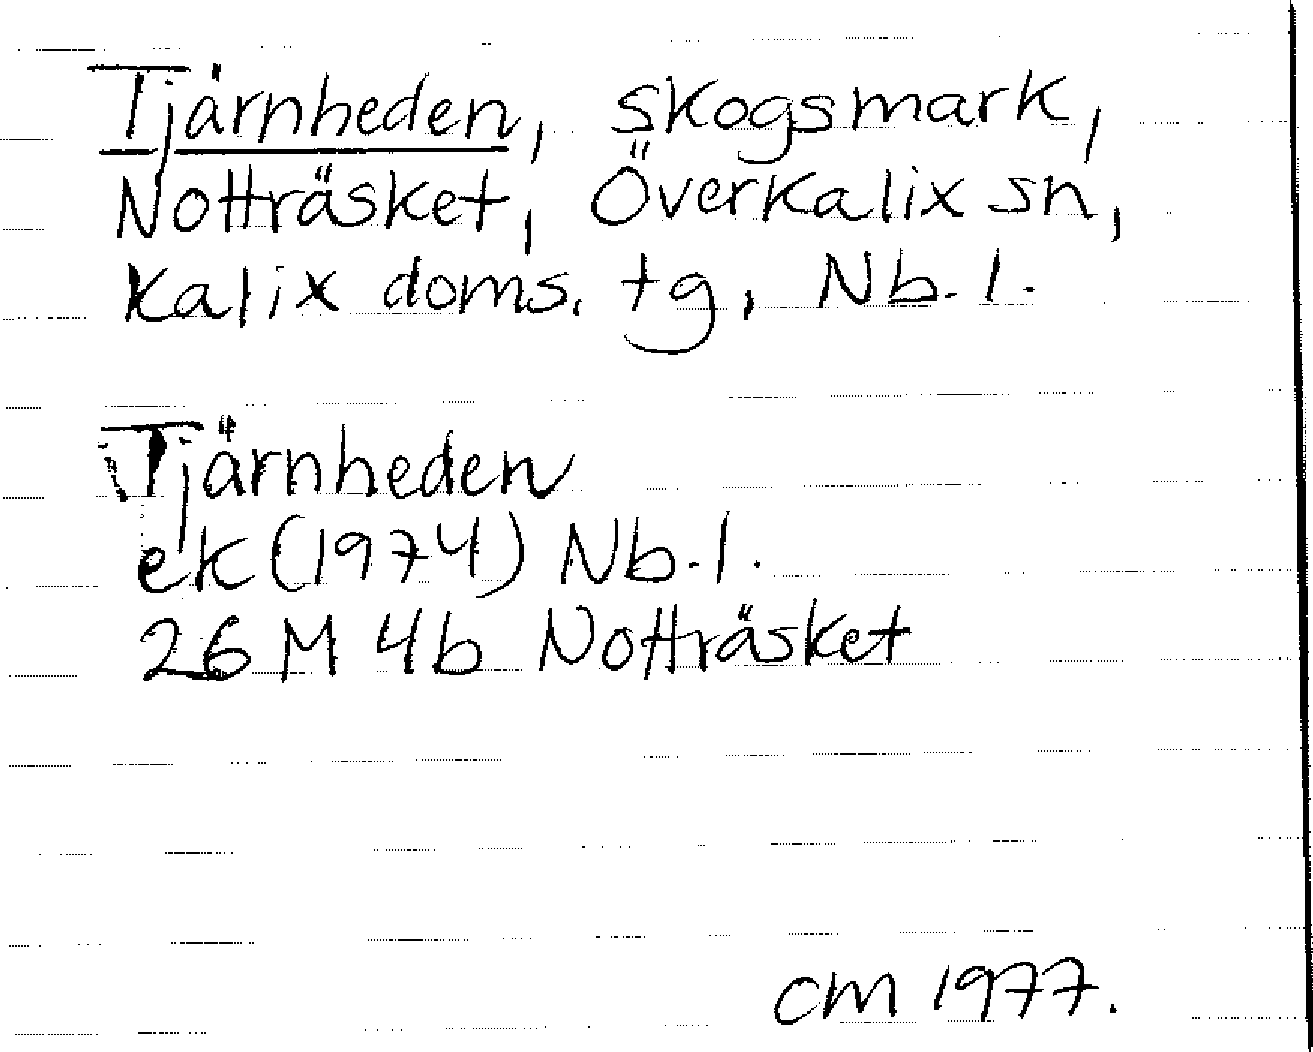 Tjärnheden, skogsmark,
Notträsket, Överkalix sn,
Kalix doms. tg, Nb. l.
Tjärnheden
ek (1974) Nb. l.
26 M 4b Notträsket
CM 1977.